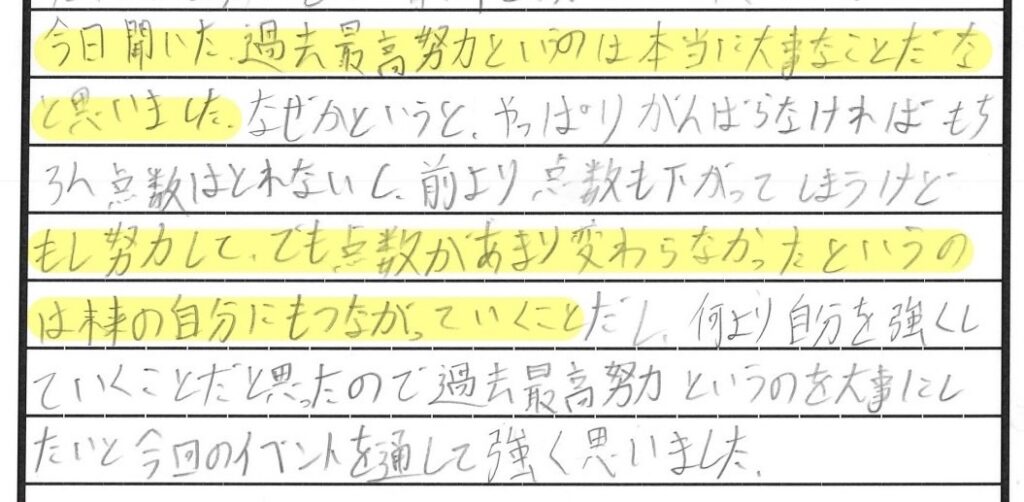 今日聞いた過去最高努力というのは本当に大事なことだな
と思いました。なぜかというと、やっぱりがんばらなければもち
ろん点数はとれないし、前より点数も下がってしまうけど
もし努力して、でも点数があまり変わらなかったというの
は未来の自分にもつながっていくことだし、何より自分を強くし
ていくことだと思ったので過去最高努力というのを大事にし
たいと今回のイベントを通して強く思いました。